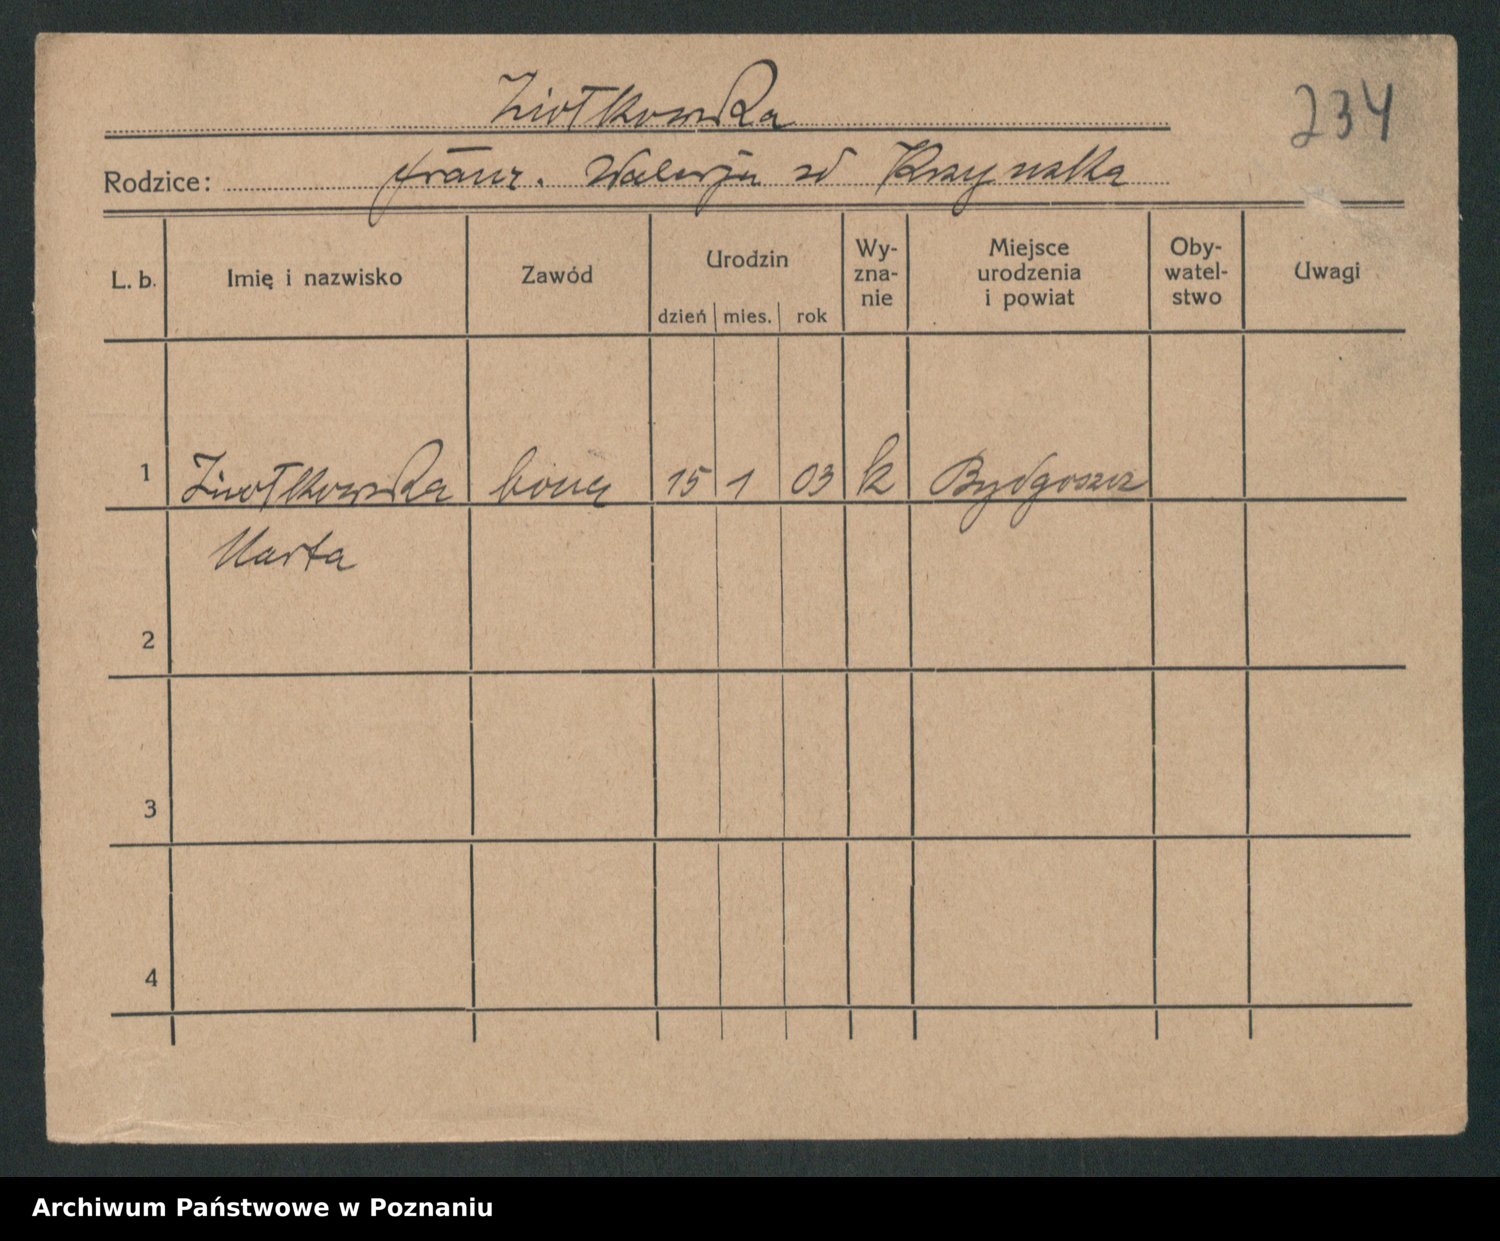 Ziołkowska
234
Rodzice: Franc. Walerja zd Krzyńska
L. b. Imię i nazwisko Zawód Urodzin dzień mies. rok Wy-zna-nie Miejsce urodzenia i powiat Oby-watel-stwo Uwagi
1 Ziołkowska bona 15 1 03 k Bydgoszcz
Marta
2
3
4
Archiwum Państwowe w Poznaniu